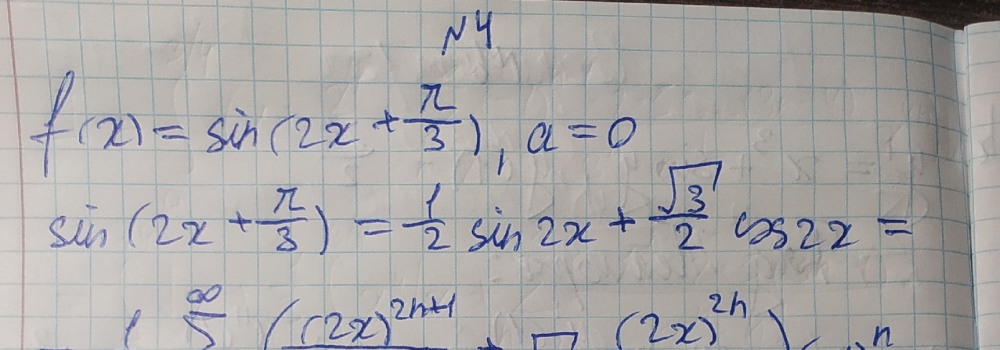 №4
f(x) = sin(2x + π/3), a = 0
sin(2x + π/3) = 1/2 sin 2x + √3/2 cos 2x =
∞ (2x)^{2n+1} + (2x)^{2n}) n